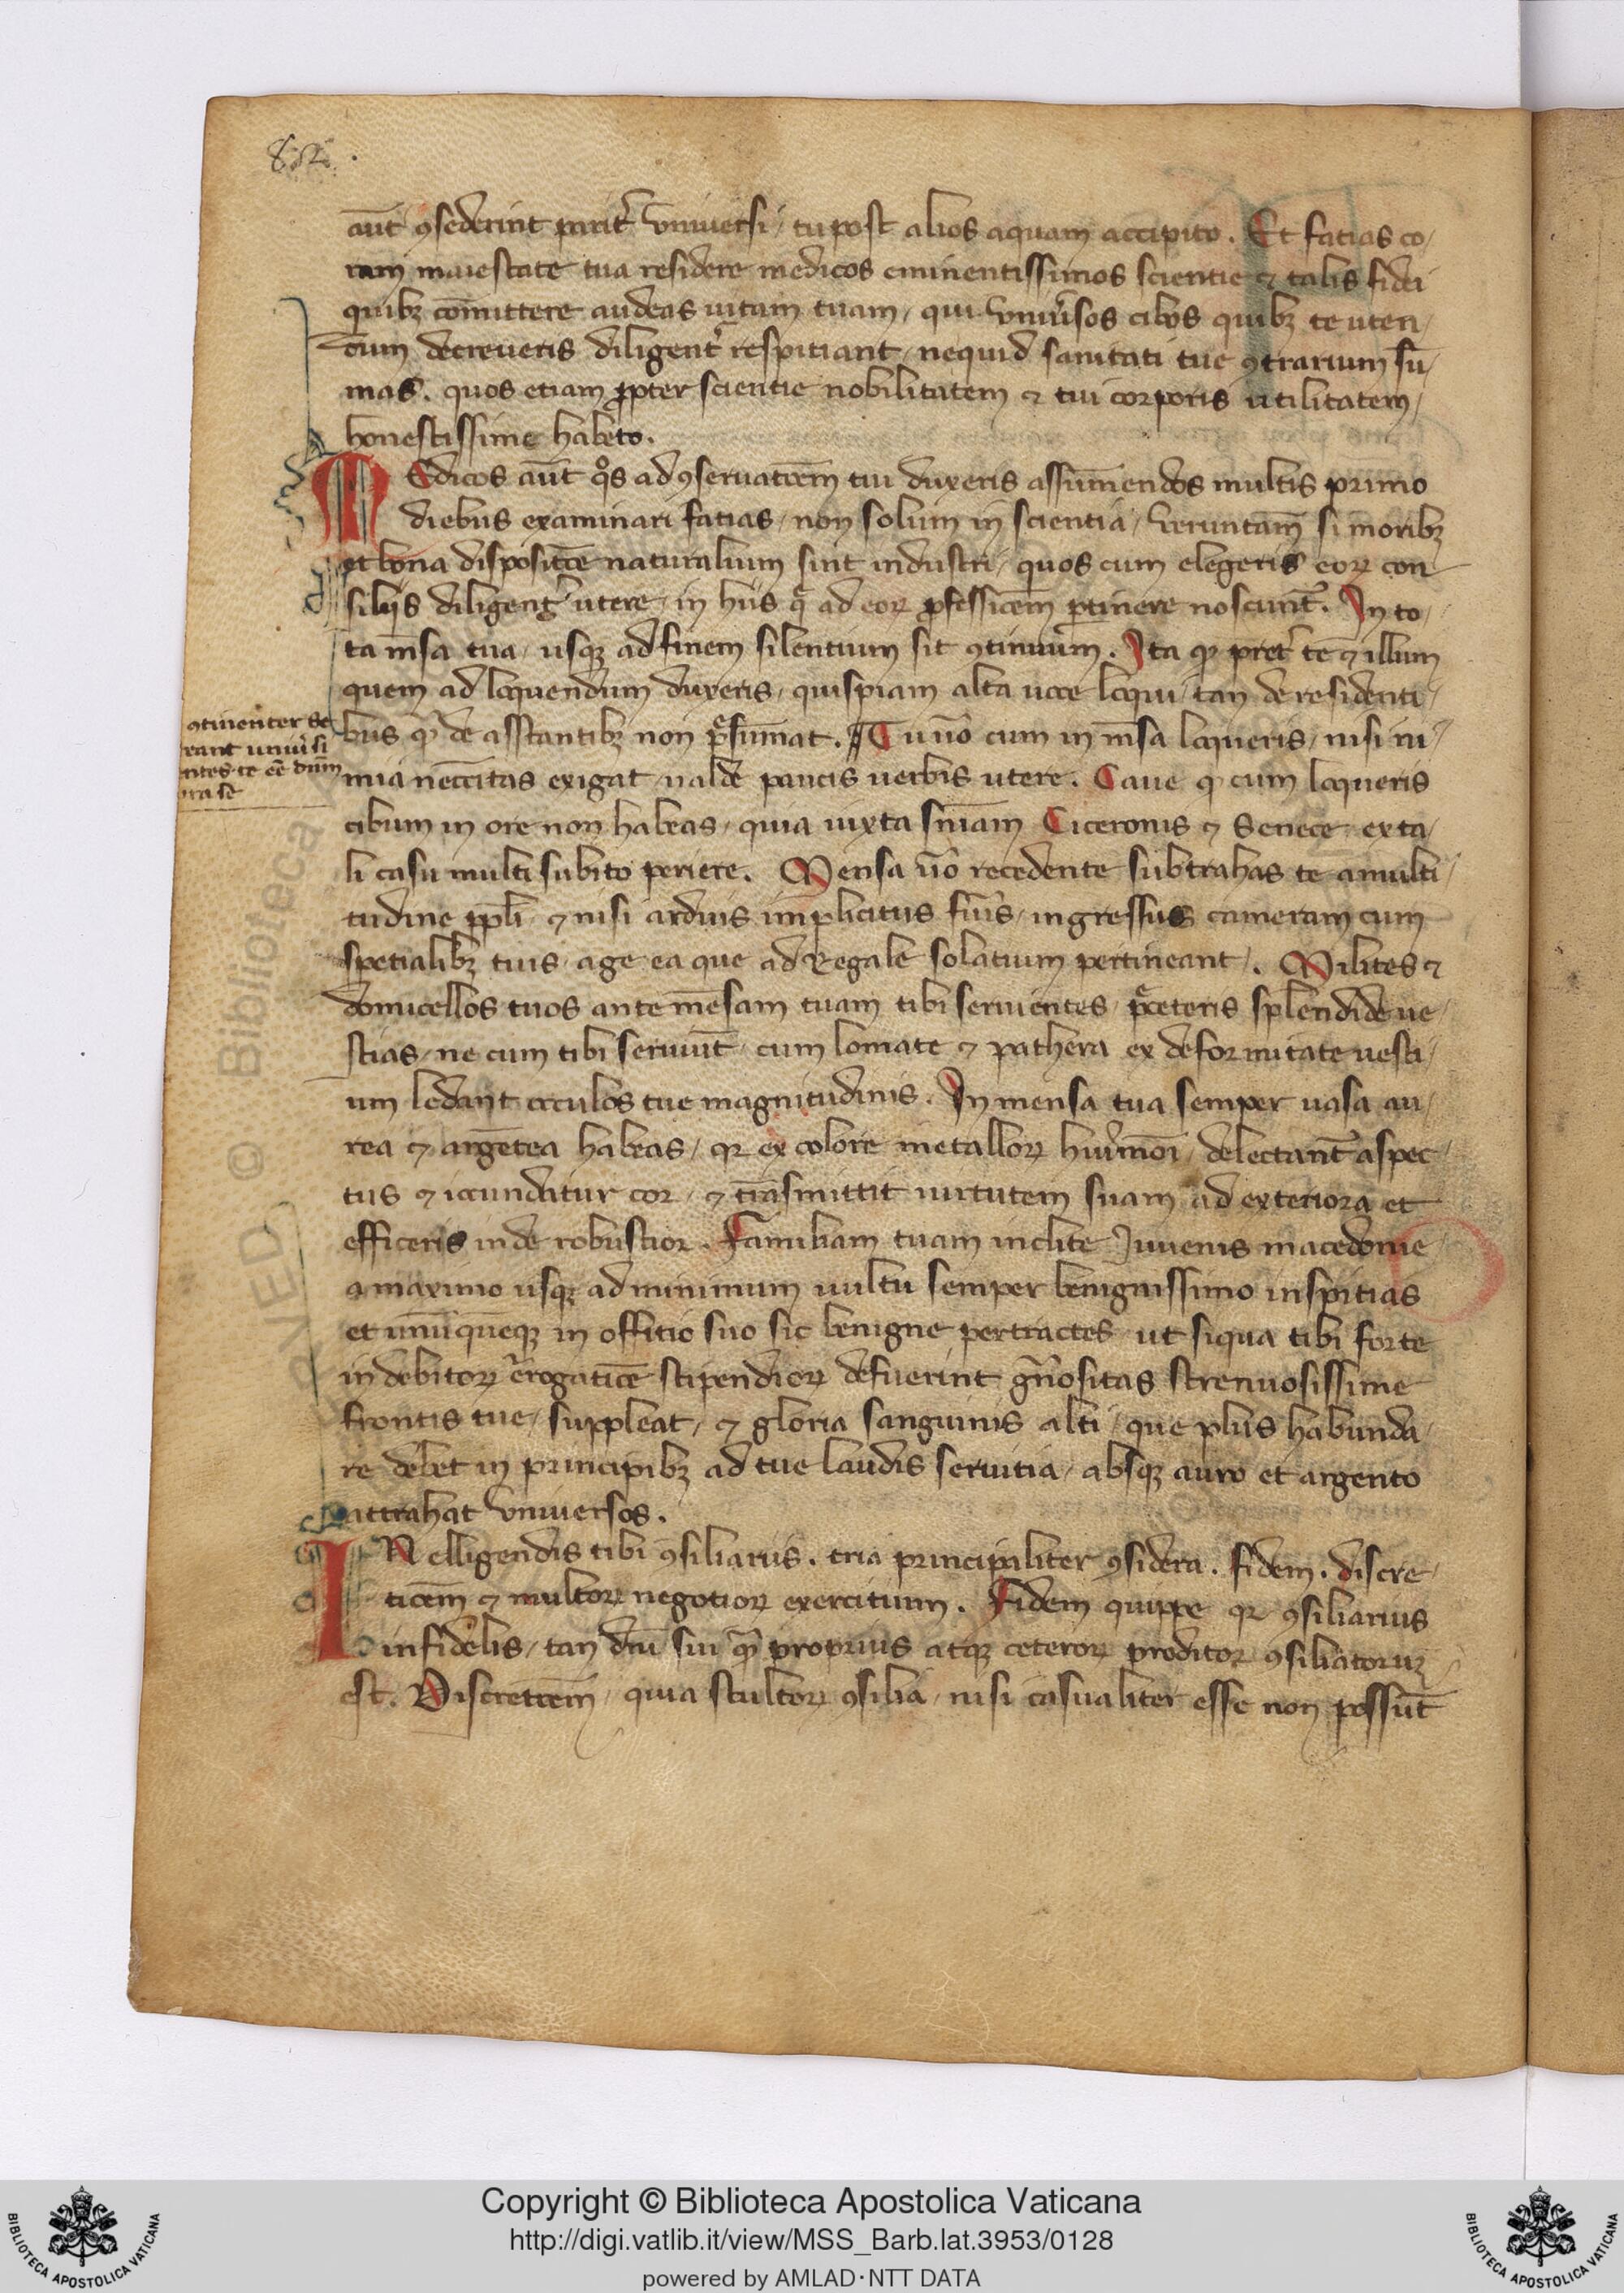 82.
aūt ꝯsederint parit̉ vniuersi / tu post alios aquam accipito. Et fatias co/
ram maiestate tua residere medicos eminentissimos scientie ⁊ talis fidei
quibꝫ cōmittere audeas uitam tuam / qui vniu̓sos cibos quibꝫ te uten/
dum decreueris diligent̉ respitiant / nequid sanitati tue ꝯtrarium sū/
mas. quos etiam ꝓpter scientie nobilitatem ⁊ tui corporis utilitatem /
honestissime habeto.
MEdicos aūt qͦs ad ꝯseruatōem tui duxeris assūmendos multis primo
diebus examinari fatias / non solum in scientia / veruntam̄ si moribꝫ
et bona dispositōe naturalium sint industri / quos cum elegeris eoꝝ con
silijs diligent̉ utere / in hiis q̄ ad eoꝝ ꝓfessiōem ꝑtinere noscunt̉. In to/
ta m̄sa tua / usqꝫ ad finem silentium sit ꝯtinuum. Ita ꝙ pret̉ te ⁊ illum
quem ad loquendum duxeris / quispiam alta uoce loqui / tan de residenti/
bus ꝙ̄ de asstantibꝫ non p̄sūmat. Tu u̅o cum in m̄sa loqueris / nisi ni/
mia neccītas exigat / ualde paucis uerbis utere. Caue ꝙ cum loqueris
cibum in ore non habeas / quia iuxta sn̄iam Ciceronis ⁊ Senece ex ta/
li casu multi subito periere. Mensa u̅o recedente subtrahas te a multi/
tudine ppl̄i ⁊ nisi arduis implicitus fu̓is / ingressus cameram cum
spetialibꝫ tuis age ea que ad Regale solatium pertineant. Milites ⁊
domicellos tuos ante mēsam tuam tibi seruientes / p̄ceteris splendide ue/
stias / ne cum tibi seruiūt cum lomate ⁊ pathera ex deformitate uesti/
um ledant oculos tue magnitudinis. In mensa tua semper uasa au/
rea ⁊ argētea habeas / qꝛ ex colore metalloꝝ hui̓mōi / delectant̉ aspec/
tus ⁊ iocundatur cor / ⁊ trāsmittit uirtutem suam ad exteriora et
efficeris inde robustior. Familiam tuam inclite Iuuenis macedonie
a maximo usqꝫ ad minimum uultu semper benignissimo inspitias
et unūquēqꝫ in offitio suo sic benigne pertractes ut siqua tibi forte
in debitoꝝ erogatiōe stipendioꝝ defuerint gn̓ositas strenuosissime
frontis tue / suppleat / ⁊ gloria sanguinis alti / que plus habunda/
re debet in principibꝫ ad tue laudis seruitia / absqꝫ auro et argento
attrahat vniuersos.
IN elligendis tibi ꝯsiliariis. tria principaliter ꝯsidera. fidem. discre/
tiōem ⁊ multoꝝ negotioꝝ exercitium. Fidem quippe qꝛ ꝯsiliarius
infidelis / tan dn̄i sui ꝙ̄ proprius atqꝫ ceteroꝝ proditor ꝯsiliatoruꝝ
est. Discretōem / quia stultoꝝ ꝯsilia / nisi casualiter esse non possūt
ꝯtinenter se
Copyright © Biblioteca Apostolica Vaticana
http://digi.vatlib.it/view/MSS_Barb.lat.3953/0128
powered by AMLAD·NTT DATA
BIBLIOTECA APOSTOLICA VATICANA
BIBLIOTECA APOSTOLICA VATICANA